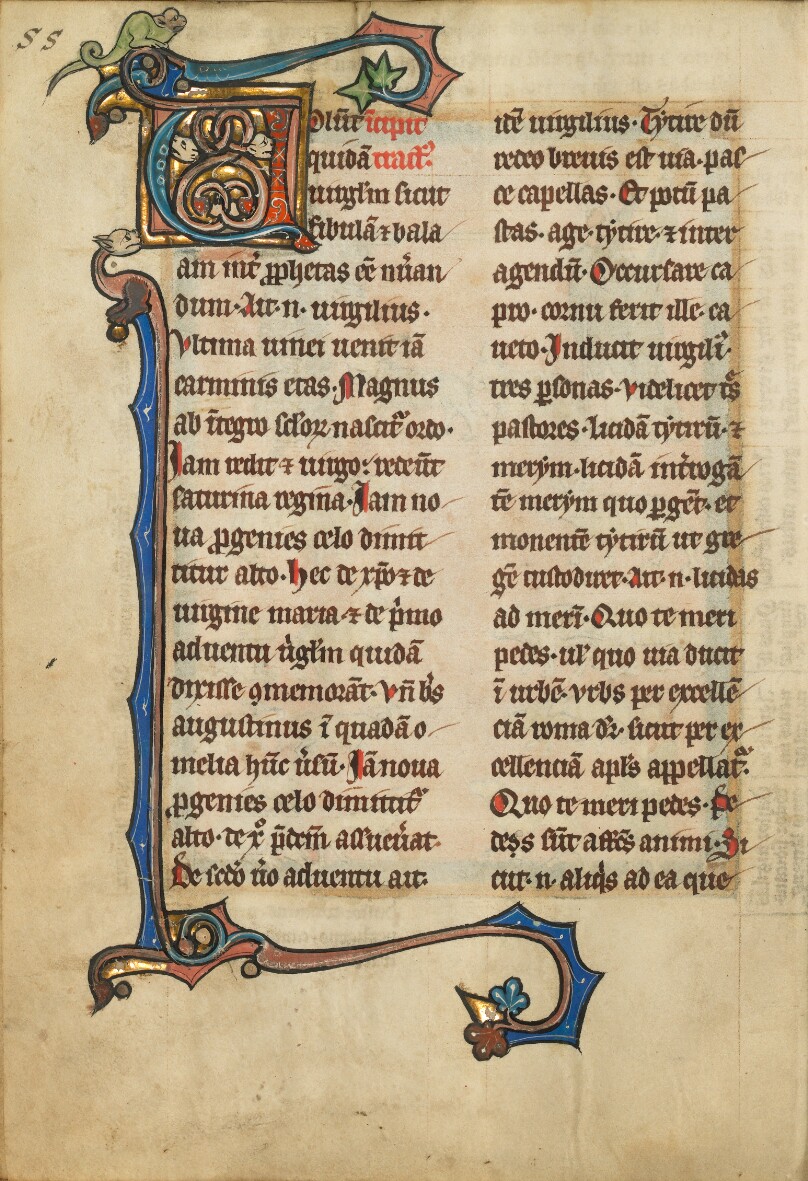 SS
Volūt īcipit
quidā tractꝰ
uirgl'm sicut
sibulā ⁊ bala
am int̄ ꝓphetas eē nūan
dum. Ait. n. uirgilius.
Vltima uinci uenit iā
carminis etas. Magnus
ab ītegro sc̄loꝝ nascit᷑ ordo.
Jam redit ⁊ uirgo: redeūt
saturnia regnia. Jam no
ua ꝓgenies celo dimit
titur alto. hec de xp̄o ⁊ de
uirgine maria ⁊ de p̄mo
aduentu u̓gl'm quidā
dixisse ꝯmemorāt. Vn̄ b̄s
augustinus ī quadā o
melia hūc u̓sū. Jā noua
ꝓgenies celo dimittit᷑
alto. de xᵒ p̄dcm̄ asseuēat.
De scd̄o ūo aduentu ait.
itē uirgilius. Tytire dū
redeo breuis est uia. pas
ce capellas. Et potū pa
stas. age. tytire. ⁊ inter
agendū. Occursare ca
pro. cornu ferit ille. ca
ueto. Inducit uirgiliꝰ.
tres ꝑsonas. videlicet tᵉs
pastores. licidā tytirū. ⁊
merym. licidā int̄rogā
tē merym quo ꝑgēt. et
monentē tytirū ut gre
gē custodiret. Ait. n. licidas
ad merī. Quo te meri
pedes. ul' quo uia ducit
ī urbē. vrbs per excellē
ciā roma dr̄. sicut per ex
cellenciā apl's appellat᷑.
Quo te meri pedes. Pe
des sūt affc̄s animi. Si
cut. n. aliq̓s ad ea que